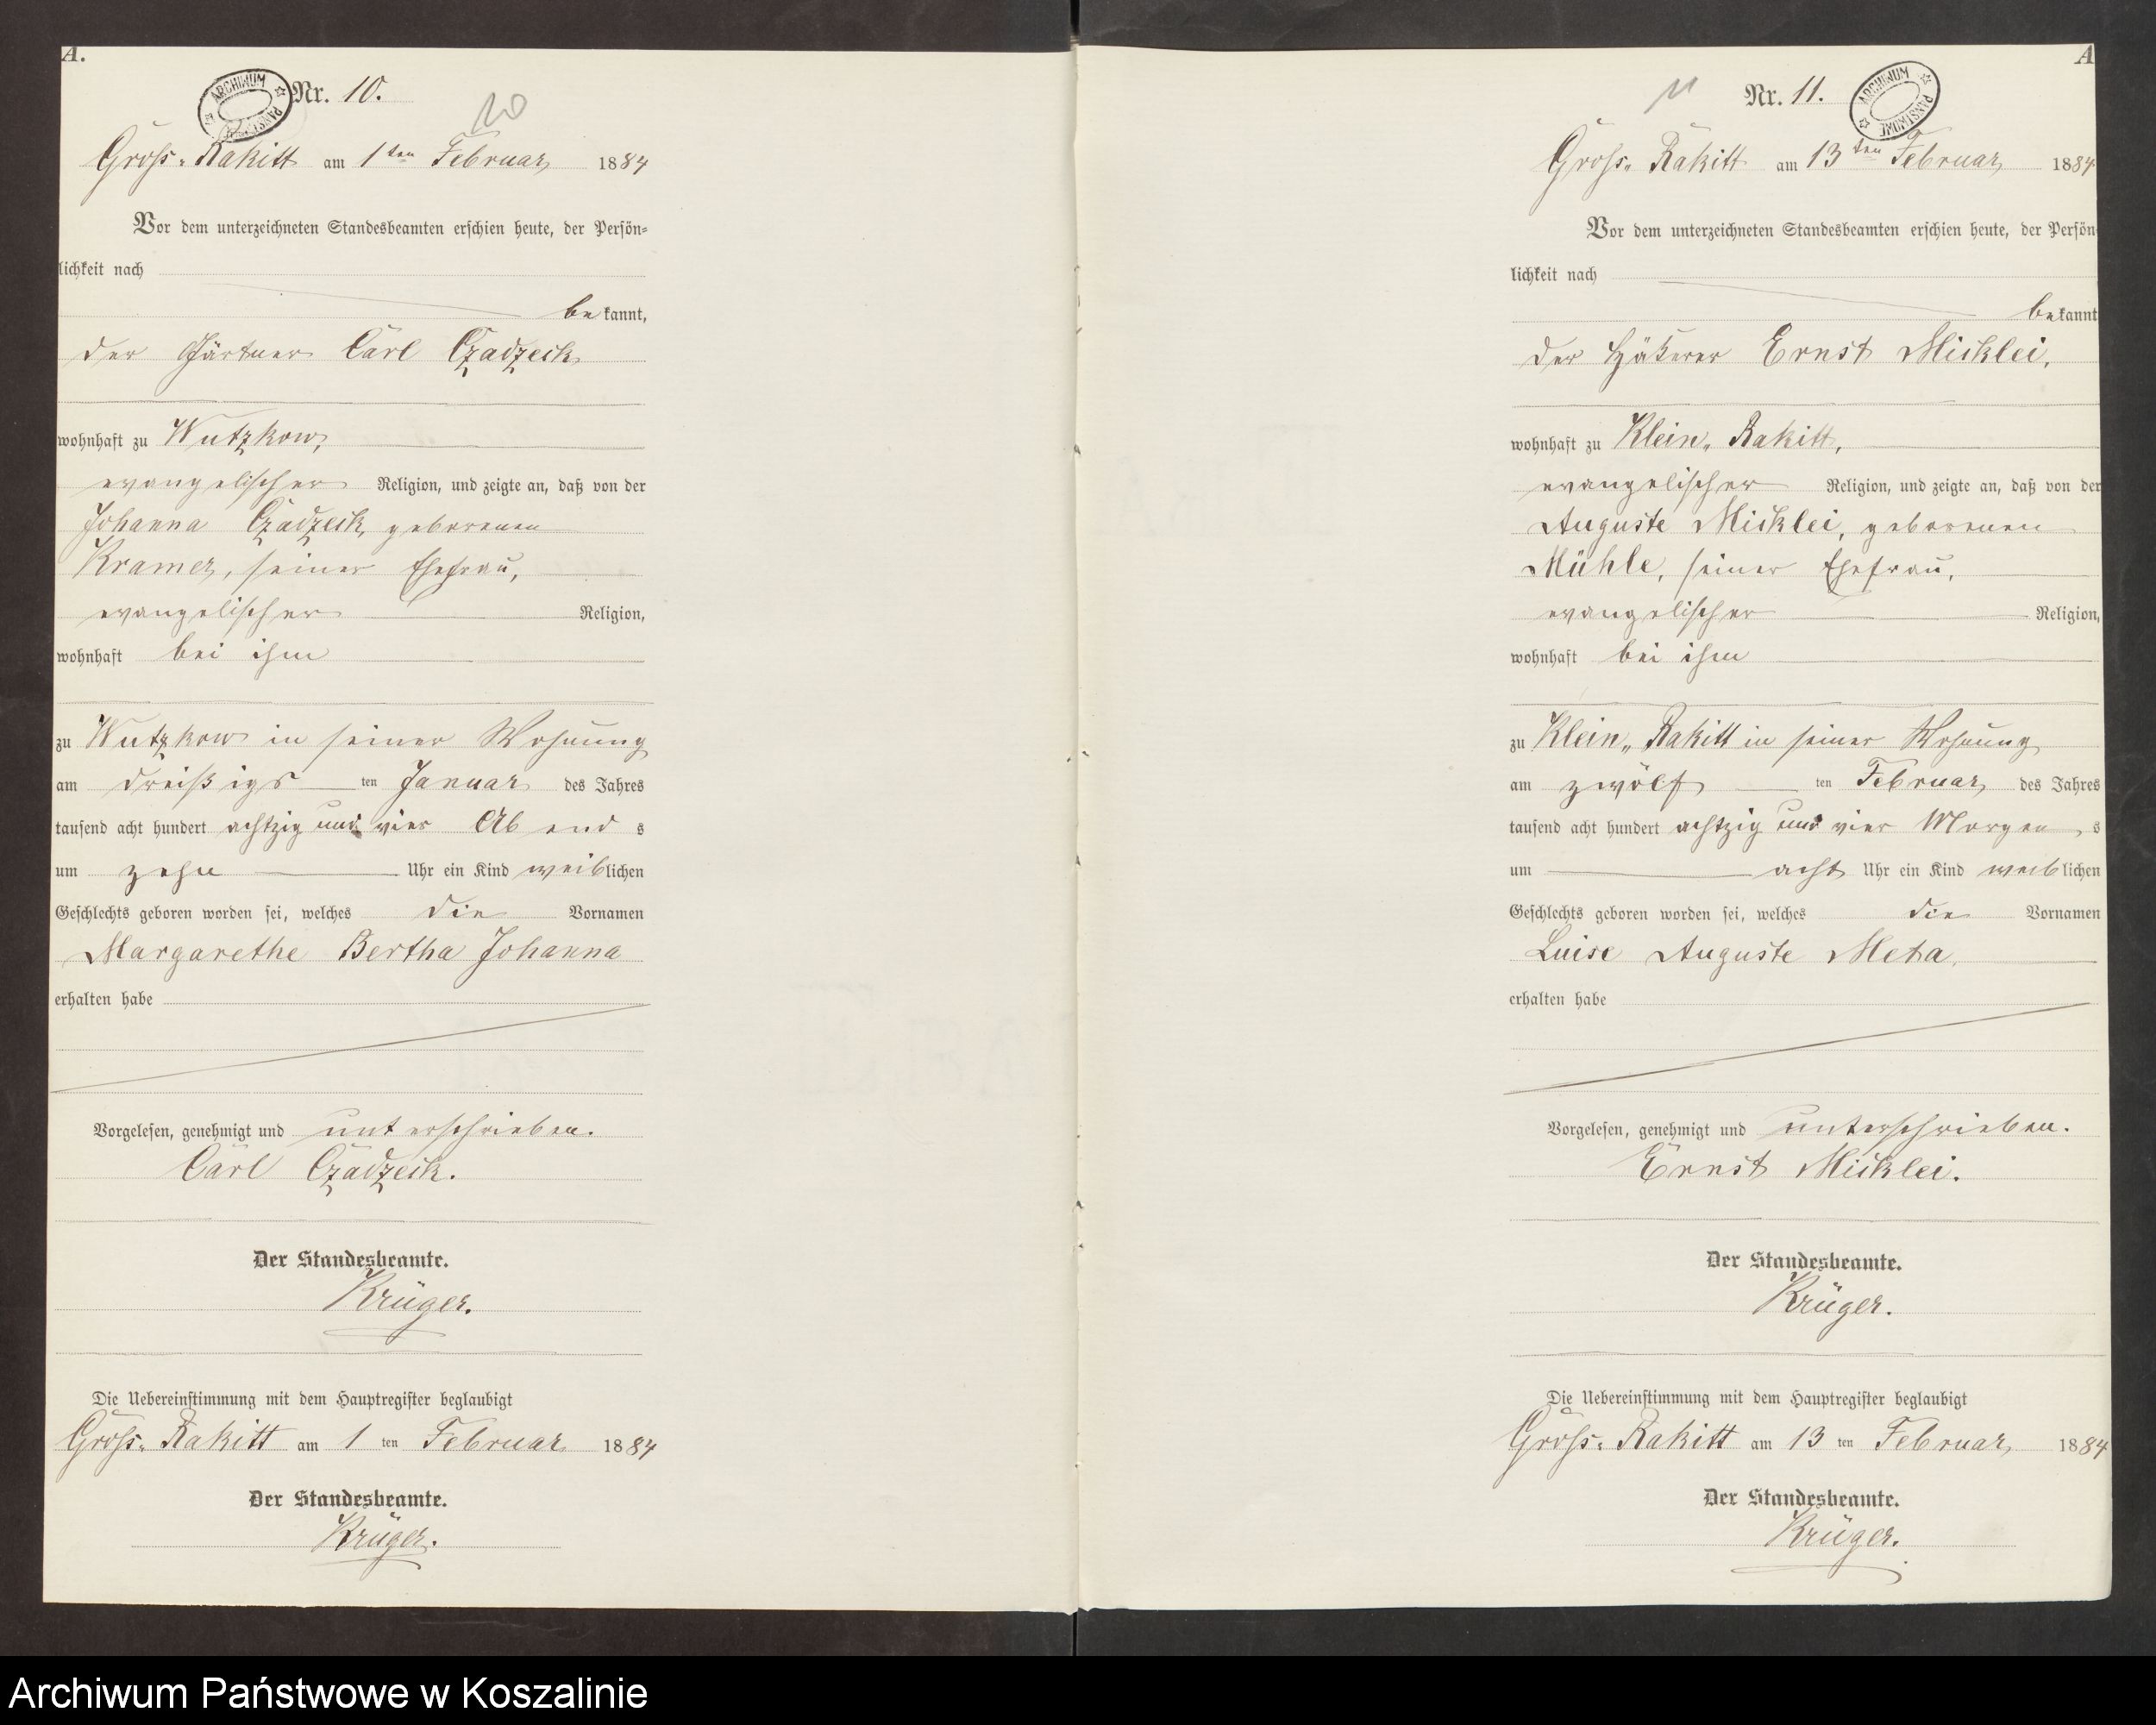 A.
ARCHIWUM PAŃSTWOWE
Nr. 10.
10
Gross-Rakitt am 1ten Februar 1884
Vor dem unterzeichneten Standesbeamten erschien heute, der Persön-
lichkeit nach
bekannt,
der Gärtner Carl Czadzeck
wohnhaft zu Wutzkow,
evangelischer Religion, und zeigte an, daß von der
Johanna Czadzeck, geborenen
Kramer, seiner Ehefrau,
evangelischer Religion,
wohnhaft bei ihm
zu Wutzkow in seiner Wohnung
am dreißigs ten Januar des Jahres
tausend acht hundert achtzig und vier Abends
um zehn Uhr ein Kind weiblichen
Geschlechts geboren worden sei, welches die Vornamen
Margarethe Bertha Johanna
erhalten habe
Vorgelesen, genehmigt und unterschrieben.
Carl Czadzeck.
Der Standesbeamte.
Krüger.
Die Uebereinstimmung mit dem Hauptregister beglaubigt
Gross-Rakitt am 1 ten Februar 1884
Der Standesbeamte.
Krüger.
A
11
Nr. 11.
ARCHIWUM PAŃSTWOWE
Gross-Rakitt am 13ten Februar 1884
Vor dem unterzeichneten Standesbeamten erschien heute, der Persön
lichkeit nach
bekannt
der Ernst Micklei,
wohnhaft zu Klein-Rakitt,
evangelischer Religion, und zeigte an, daß von der
Auguste Micklei, geborenen
Mühle, seiner Ehefrau,
evangelischer Religion,
wohnhaft bei ihm
zu Klein-Rakitt in seiner Wohnung
am zwölf ten Februar des Jahres
tausend acht hundert achtzig und vier Morgens
um acht Uhr ein Kind weiblichen
Geschlechts geboren worden sei, welches die Vornamen
Luise Auguste Meta,
erhalten habe
Vorgelesen, genehmigt und unterschrieben.
Ernst Micklei.
Der Standesbeamte.
Krüger.
Die Uebereinstimmung mit dem Hauptregister beglaubigt
Gross-Rakitt am 13 ten Februar 1884
Der Standesbeamte.
Krüger.
Archiwum Państwowe w Koszalinie